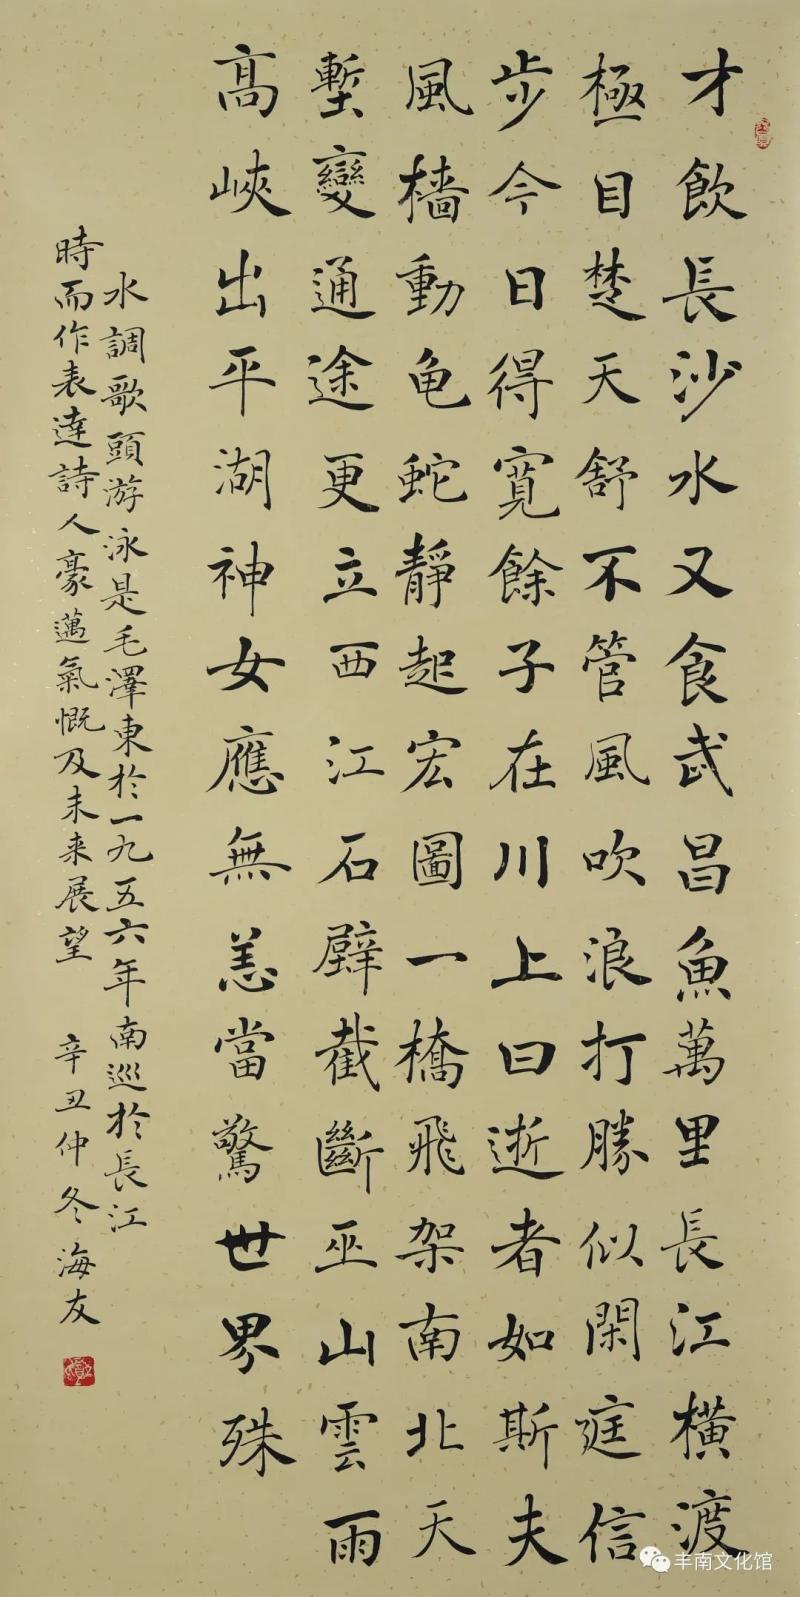 才飲長沙水又食武昌魚萬里長江橫渡
極目楚天舒不管風吹浪打勝似閑庭信
步今日得寬餘子在川上曰逝者如斯夫
風檣動龟蛇靜起宏圖一橋飛架南北天
塹變通途更立西江石壁截斷巫山雲雨
髙峽出平湖神女應無恙當驚世界殊
水調歌頭游泳是毛澤東於一九五六年南巡於長江
時而作表達詩人豪邁氣慨及未来展望 辛丑仲冬海友
丰南文化馆